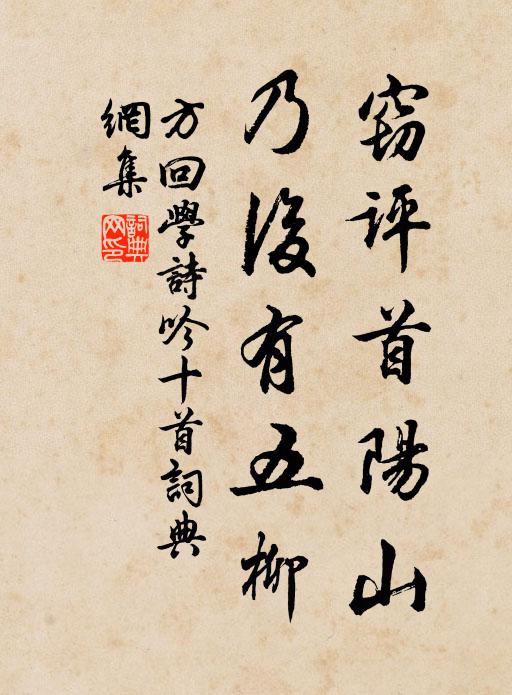 窃評首陽山
乃後有五柳
方回學詩吟十首詞典
網集
詞典
网印